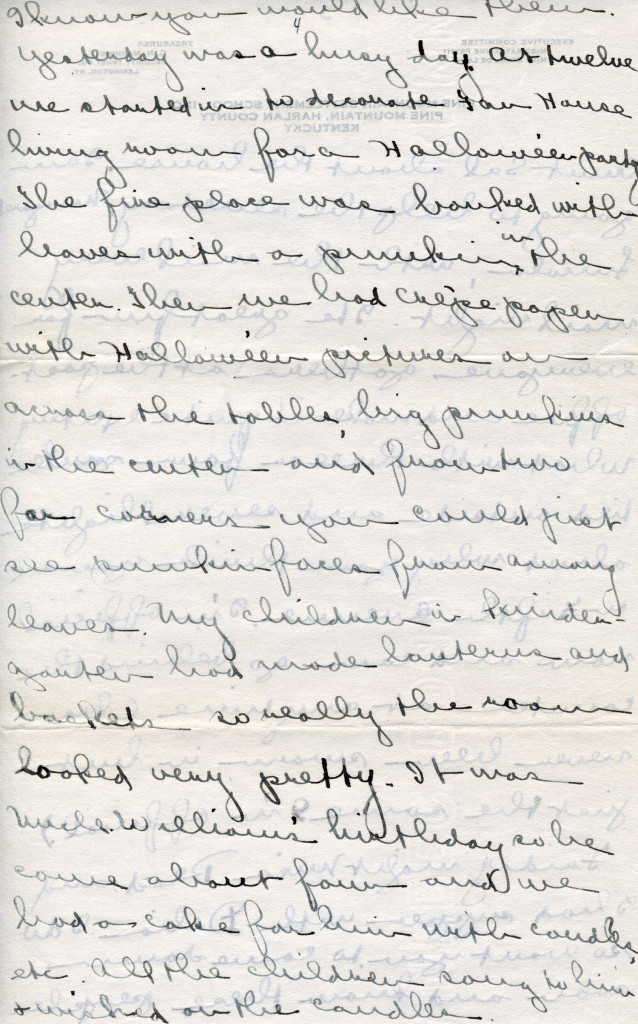 I know you would like them.
Yesterday was a busy day. At twelve
we started in to decorate Far House
living room for a Hallowe'en party
The fire place was banked with
leaves with a pumkin in the
center. Then we had crêpe paper
with Hallowe'en pictures on
across the tables, big pumkins
in the center - and from two
far corners you could just
see pumkin faces from among
leaves. My children in kinder-
garten had made lanterns and
baskets so really the room
looked very pretty. It was
Uncle William's birthday so he
came about four - and we
had a cake for him with candles,
etc. All the children sang to him
& wished on the candles.